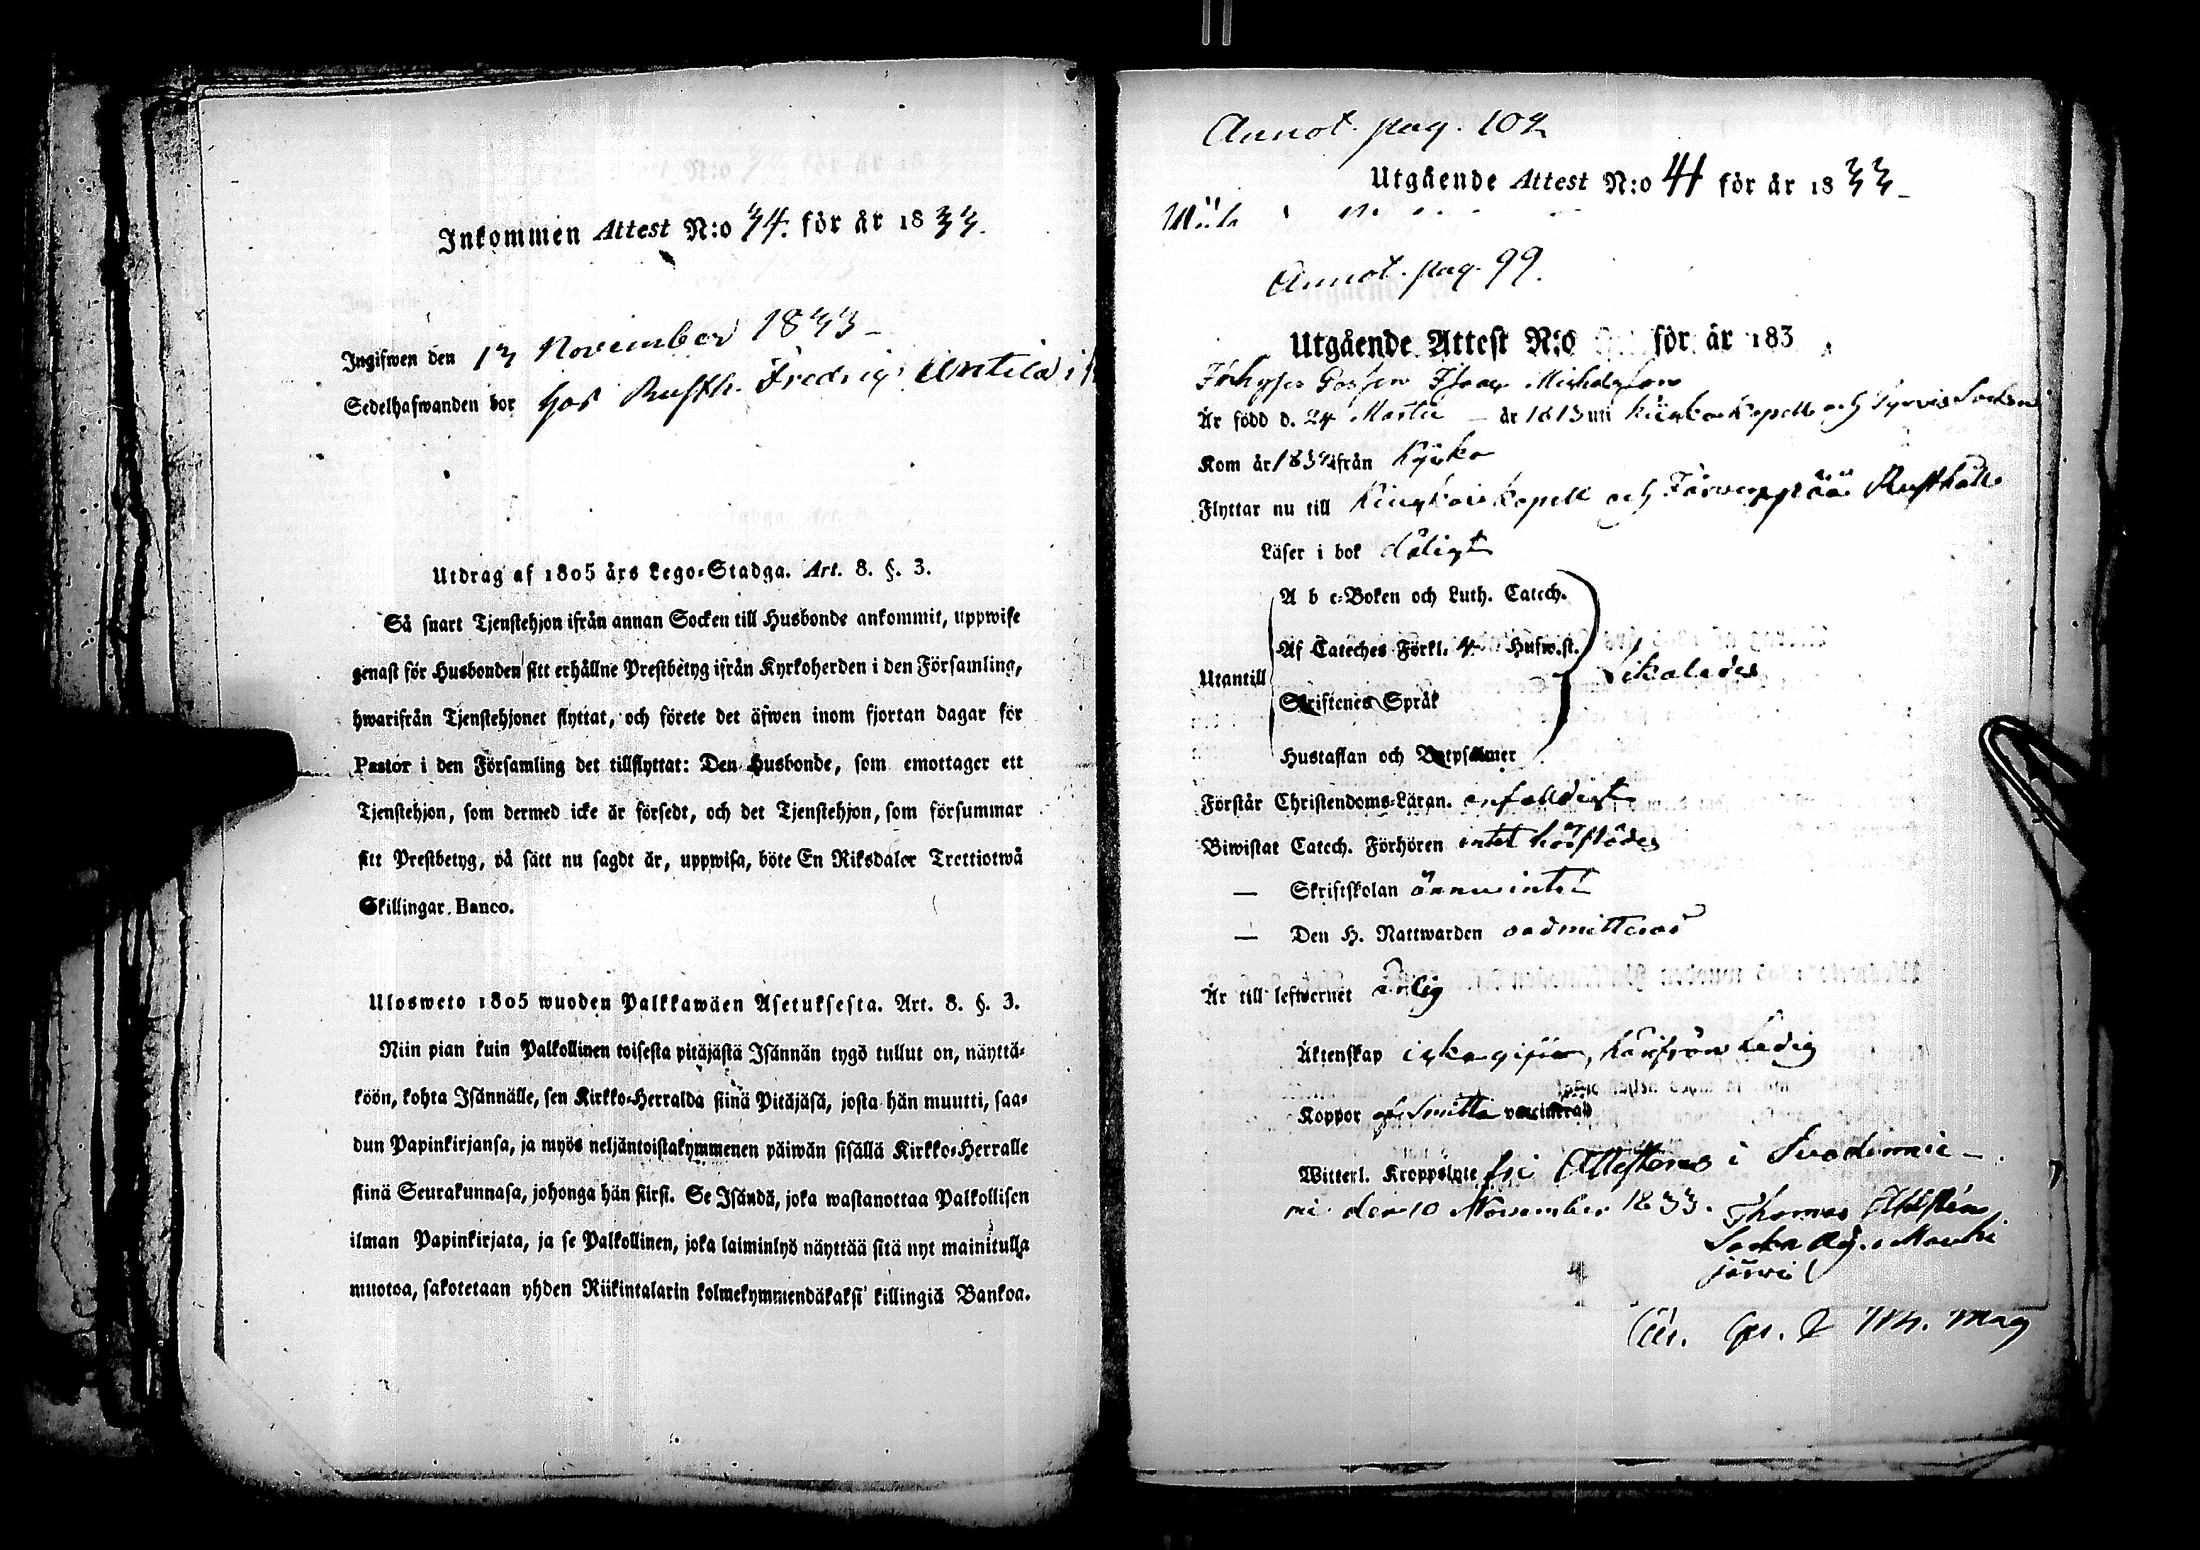 Inkommen Attest N:o 34. för år 1833.
Ingifwen den 13 November 1833 –
Sedelhafwanden bor hos Rusth. Fredrig Anttila i
Utdrag af 1805 års Lego-Stadga. Art. 8. §. 3.
Så snart Tjenstehjon ifrån annan Socken till Husbonde ankommit, uppwise
genast för Husbonden sitt erhållne Prestbetyg ifrån Kyrkoherden i den Församling,
hwarifrån Tjenstehjonet flyttat, och förete det äfwen inom fjortan dagar för
Pastor i den Församling det tillflyttat: Den Husbonde, som emottager ett
Tjenstehjon, som dermed icke är försedt, och det Tjenstehjon, som försummar
sitt Prestbetyg, på sätt nu sagdt är, uppwisa, böte En Riksdaler Trettiotwå
Skillingar Banco.
Ulosweto 1805 wuoden Palkkawäen Asetuksesta. Art. 8. §. 3.
Niin pian kuin Palkollinen toisesta pitäjästä Isännän tygö tullut on, näyttä-
köön, kohta Isännälle, sen Kirkko-Herralda siinä Pitäjäsä, josta hän muutti, saa-
dun Papinkirjansa, ja myös neljäntoistakymmenen päiwän sisällä Kirkko-Herralle
siinä Seurakunnasa, johonga hän siirsi. Se Isändä, joka wastanottaa Palkollisen
ilman Papinkirjata, ja se Palkollinen, joka laiminlyö näyttää sitä nyt mainitulla
muotoa, sakotetaan yhden Riikintalarin kolmekymmendäkaksi killingiä Bankoa.
Annot. pag. 102
Utgående Attest N:o 41 för år 1833 –
Annot. pag. 99.
Utgående Attest N:o för år 183
Gossen Isaac Michelsson
Är född d. 24 Martii – år 1813 uti Kapell och Tyrvis Socken
Kom år 1832 ifrån
Flyttar nu till Kapell och Järvenpää Rusthåll
Läser i bok dåligt
A b c-Boken och Luth. Catech.
Af Cateches Förkl. 4 Hufw.st.
Utantill likaledes
Skriftenes Språk
Hustaflan och Botpsalmer
Förstår Christendoms-Läran. enfaldigt
Biwistat Catech. Förhören intet härstädes
— Skriftskolan ännu intet
— Den H. Nattwarden oadmitterad
Är till lefwernet ärlig
Äktenskap icke gifwen, härifrån ledig
Koppor af Smitta vaccinerad
Witterl. Kroppslyte fri Attesteras i Suodennie-
mi den 10 November 1833. Thomas
Sacka Adj. i Mouhi
järvi